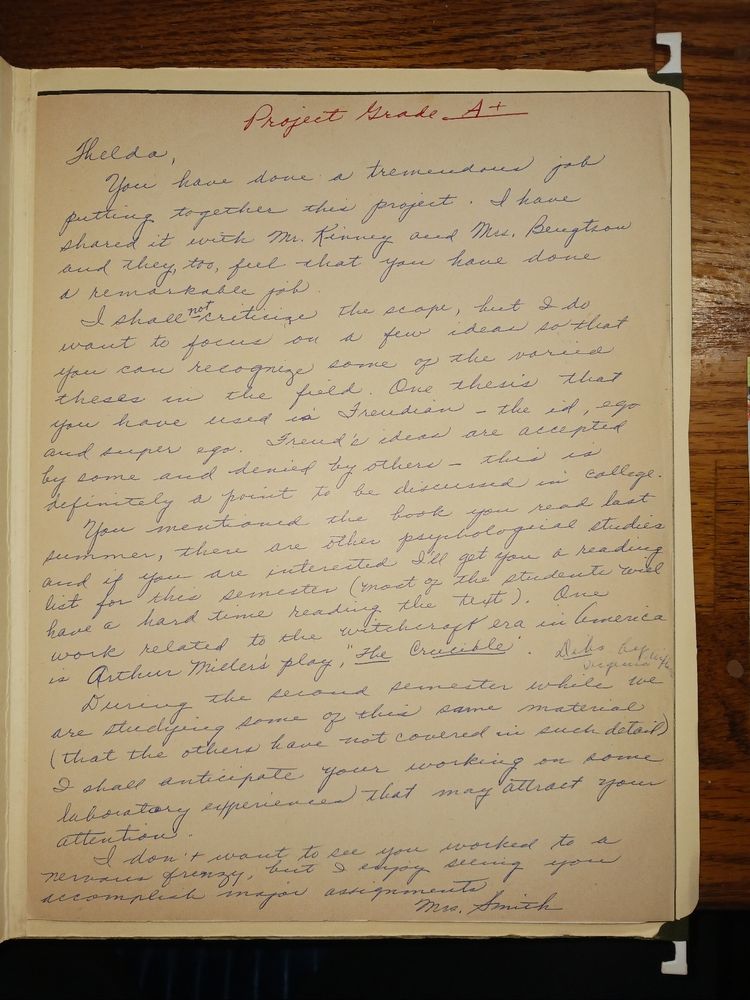 Project Grade A+
Thelda,
You have done a tremendous job
putting together this project. I have
shared it with Mr. Kinney and Mrs. Bengtson
and they, too, feel that you have done
a remarkable job.
I shall not criticize the scope, but I do
want to focus on a few ideas so that
you can recognize some of the varied
theses in the field. One thesis that
you have used is Freudian - the id, ego
and super ego. Freud's ideas are accepted
by some and denied by others - this is
definitely a point to be discussed in college.
You mentioned the book you read last
summer, there are other psychological studies
and if you are interested I'll get you a reading
list for this semester (most of the students will
have a hard time reading the text). One
work related to the witchcraft era in America
is Arthur Miller's play, "The Crucible". Dibs by
Virginia
During the second semester while we
are studying some of this same material
(that the others have not covered in such detail)
I shall anticipate your working on some
laboratory experiences that may attract your
attention.
I don't want to see you worked to a
nervous frenzy, but I enjoy seeing you
accomplish major assignments
Mrs. Smith